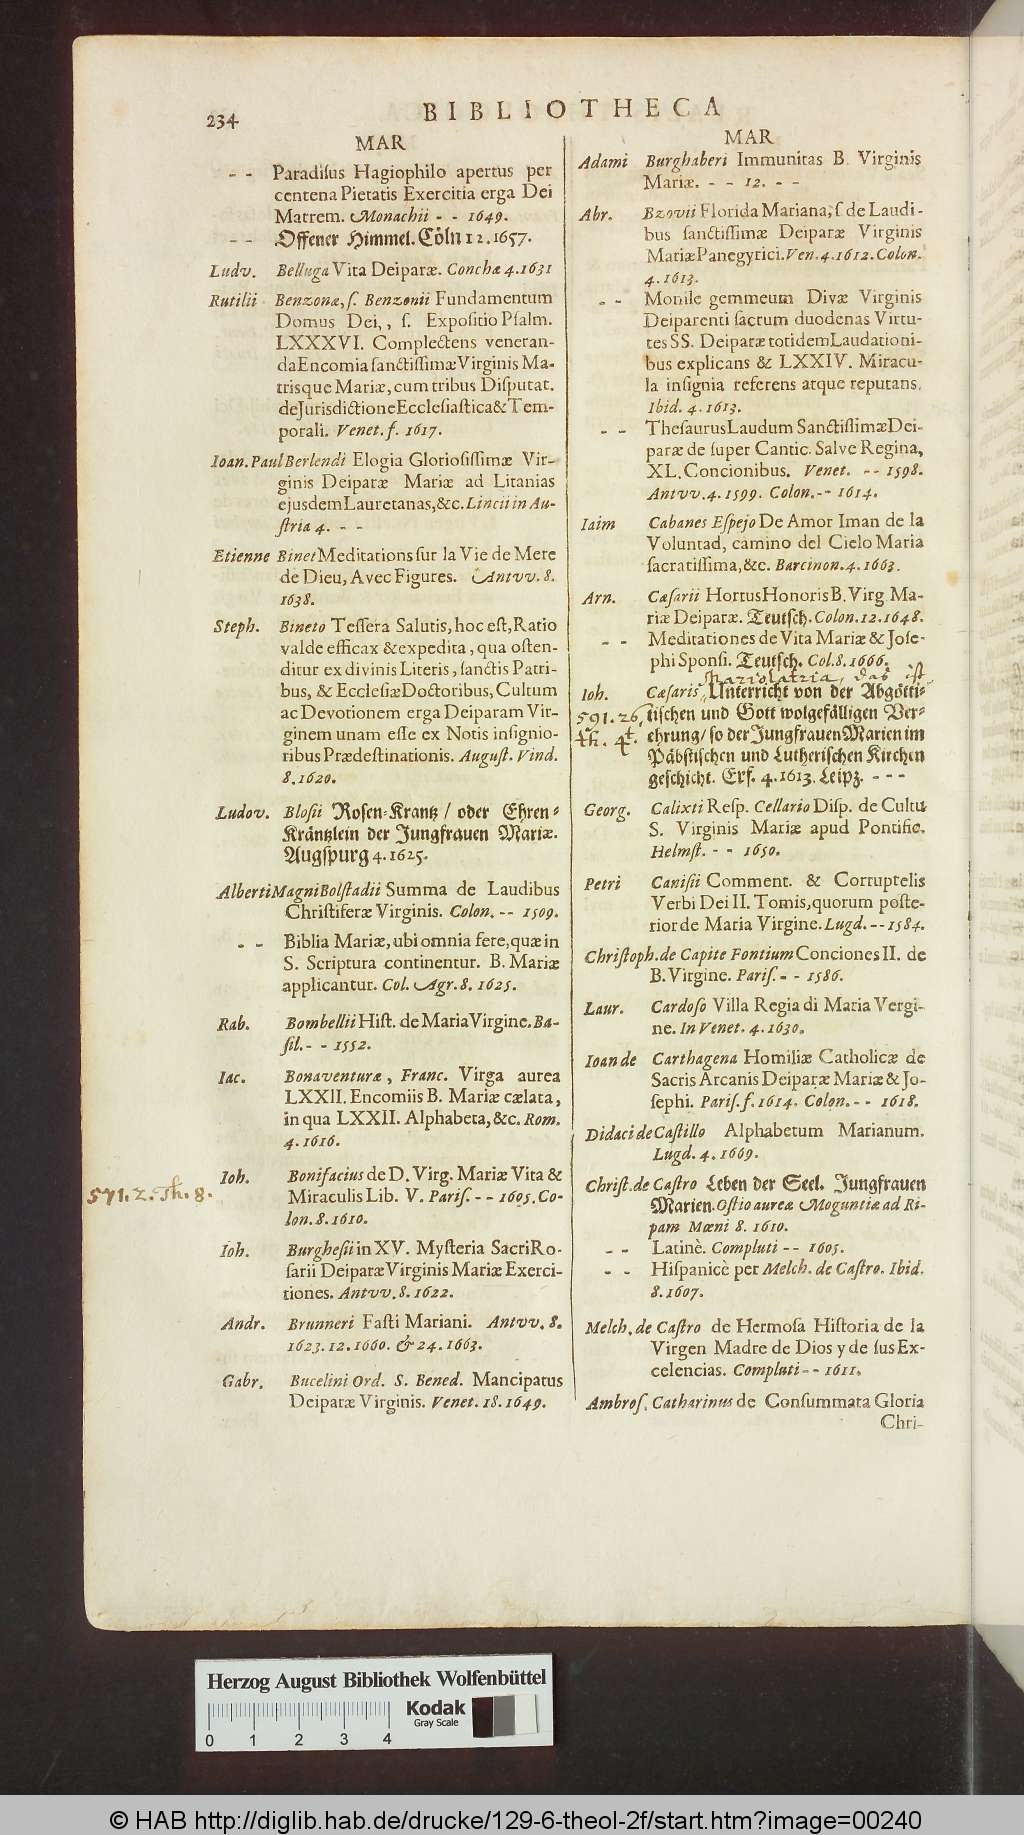 234
BIBLIOTHECA
MAR
- - Paradiſus Hagiophilo apertus per
centena Pietatis Exercitia erga Dei
Matrem. Monachii - - 1649.
- - Offener Himmel. Cöln 12. 1657.
Ludv. Belluga Vita Deiparæ. Conchæ 4. 1631
Rutilii Benzonæ, ſ. Benzonii Fundamentum
Domus Dei,, ſ. Expoſitio Pſalm.
LXXXVI. Complectens veneran-
da Encomia ſanctiſſimæ Virginis Ma-
trisque Mariæ, cum tribus Diſputat.
de Jurisdictione Eccleſiaſtica & Tem-
porali. Venet. f. 1617.
Ioan. Paul Berlendi Elogia Glorioſiſſimæ Vir-
ginis Deiparæ Mariæ ad Litanias
ejusdem Lauretanas, &c. Lincii in Au-
ſtria 4. - -
Etienne Binet Meditations ſur la Vie de Mere
de Dieu, Avec Figures. Antvv. 8.
1638.
Steph. Bineto Teſſera Salutis, hoc eſt, Ratio
valde efficax & expedita, qua oſten-
ditur ex divinis Literis, ſanctis Patri-
bus, & Eccleſiæ Doctoribus, Cultum
ac Devotionem erga Deiparam Vir-
ginem unam eſſe ex Notis inſignio-
ribus Prædeſtinationis. Auguſt. Vind.
8. 1620.
Ludov. Bloſii Roſen-Krantz / oder Ehren-
Kräntzlein der Jungfrauen Mariæ.
Augſpurg 4. 1625.
Alberti Magni Bolſtadii Summa de Laudibus
Chriſtiferæ Virginis. Colon. - - 1509.
- - Biblia Mariæ, ubi omnia fere, quæ in
S. Scriptura continentur. B. Mariæ
applicantur. Col. Agr. 8. 1625.
Rab. Bombellii Hiſt. de Maria Virgine. Ba-
ſil. - - 1552.
Iac. Bonaventuræ, Franc. Virga aurea
LXXII. Encomiis B. Mariæ cælata,
in qua LXXII. Alphabeta, &c. Rom.
4. 1616.
571. 2. Th. 8.
Ioh. Bonifacius de D. Virg. Mariæ Vita &
Miraculis Lib. V. Pariſ. - - 1605. Co-
lon. 8. 1610.
Ioh. Burgheſii in XV. Myſteria Sacri Ro-
ſarii Deiparæ Virginis Mariæ Exerci-
tiones. Antvv. 8. 1622.
Andr. Brunneri Faſti Mariani. Antvv. 8.
1623. 12. 1660. & 24. 1663.
Gabr. Bucelini Ord. S. Bened. Mancipatus
Deiparæ Virginis. Venet. 18. 1649.
MAR
Adami Burghaberi Immunitas B. Virginis
Mariæ. - - 12. - -
Abr. Bzovii Florida Mariana, ſ de Laudi-
bus ſanctiſſimæ Deiparæ Virginis
Mariæ Panegyrici. Ven. 4. 1612. Colon.
4. 1613.
- - Monile gemmeum Divæ Virginis
Deiparenti ſacrum duodenas Virtu-
tes SS. Deiparæ totidem Laudationi-
bus explicans & LXXIV. Miracu-
la inſignia referens atque reputans.
Ibid. 4. 1613.
- - Theſaurus Laudum Sanctiſſimæ Dei-
paræ de ſuper Cantic. Salve Regina,
XL. Concionibus. Venet. - - 1598.
Antvv. 4. 1599. Colon. - - 1614.
Iaim Cabanes Eſpejo De Amor Iman de la
Voluntad, camino del Cielo Maria
ſacratiſſima, &c. Barcinon. 4. 1663.
Arn. Cæſarii Hortus Honoris B. Virg Ma-
riæ Deiparæ. Teutſch. Colon. 12. 1648.
- - Meditationes de Vita Mariæ & Joſe-
phi Sponſi. Teutſch. Col. 8. 1666.
Mariolatria, das ist
Ioh. Cæſaris Unterricht von der Abgötti-
591. 26. tiſchen und Gott wolgefälligen Ver-
th. 4t. ehrung / ſo der Jungfrauen Marien im
Päbſtiſchen und Lutheriſchen Kirchen
geſchicht. Erf. 4. 1613. Leipz. - - -
Georg. Calixti Reſp. Cellario Diſp. de Cultu
S. Virginis Mariæ apud Pontific.
Helmſt. - - 1650.
Petri Caniſii Comment. & Corruptelis
Verbi Dei II. Tomis, quorum poſte-
rior de Maria Virgine. Lugd. - - 1584.
Chriſtoph. de Capite Fontium Conciones II. de
B. Virgine. Pariſ. - - 1586.
Laur. Cardoſo Villa Regia di Maria Vergi-
ne. In Venet. 4. 1630.
Ioan de Carthagena Homiliæ Catholicæ de
Sacris Arcanis Deiparæ Mariæ & Jo-
ſephi. Pariſ. f. 1614. Colon. - - 1618.
Didaci de Caſtillo Alphabetum Marianum.
Lugd. 4. 1669.
Chriſt. de Caſtro Leben der Seel. Jungfrauen
Marien. Oſtio aureæ Moguntiæ ad Ri-
pam Mœni 8. 1610.
- - Latinè. Compluti - - 1605.
- - Hiſpanicè per Melch. de Caſtro. Ibid.
8. 1607.
Melch. de Caſtro de Hermoſa Hiſtoria de la
Virgen Madre de Dios y de ſus Ex-
celencias. Compluti - - 1611.
Ambroſ. Catharinus de Conſummata Gloria
Chri-
Herzog August Bibliothek Wolfenbüttel
Kodak
Gray Scale
0 1 2 3 4
© HAB http://diglib.hab.de/drucke/129-6-theol-2f/start.htm?image=00240